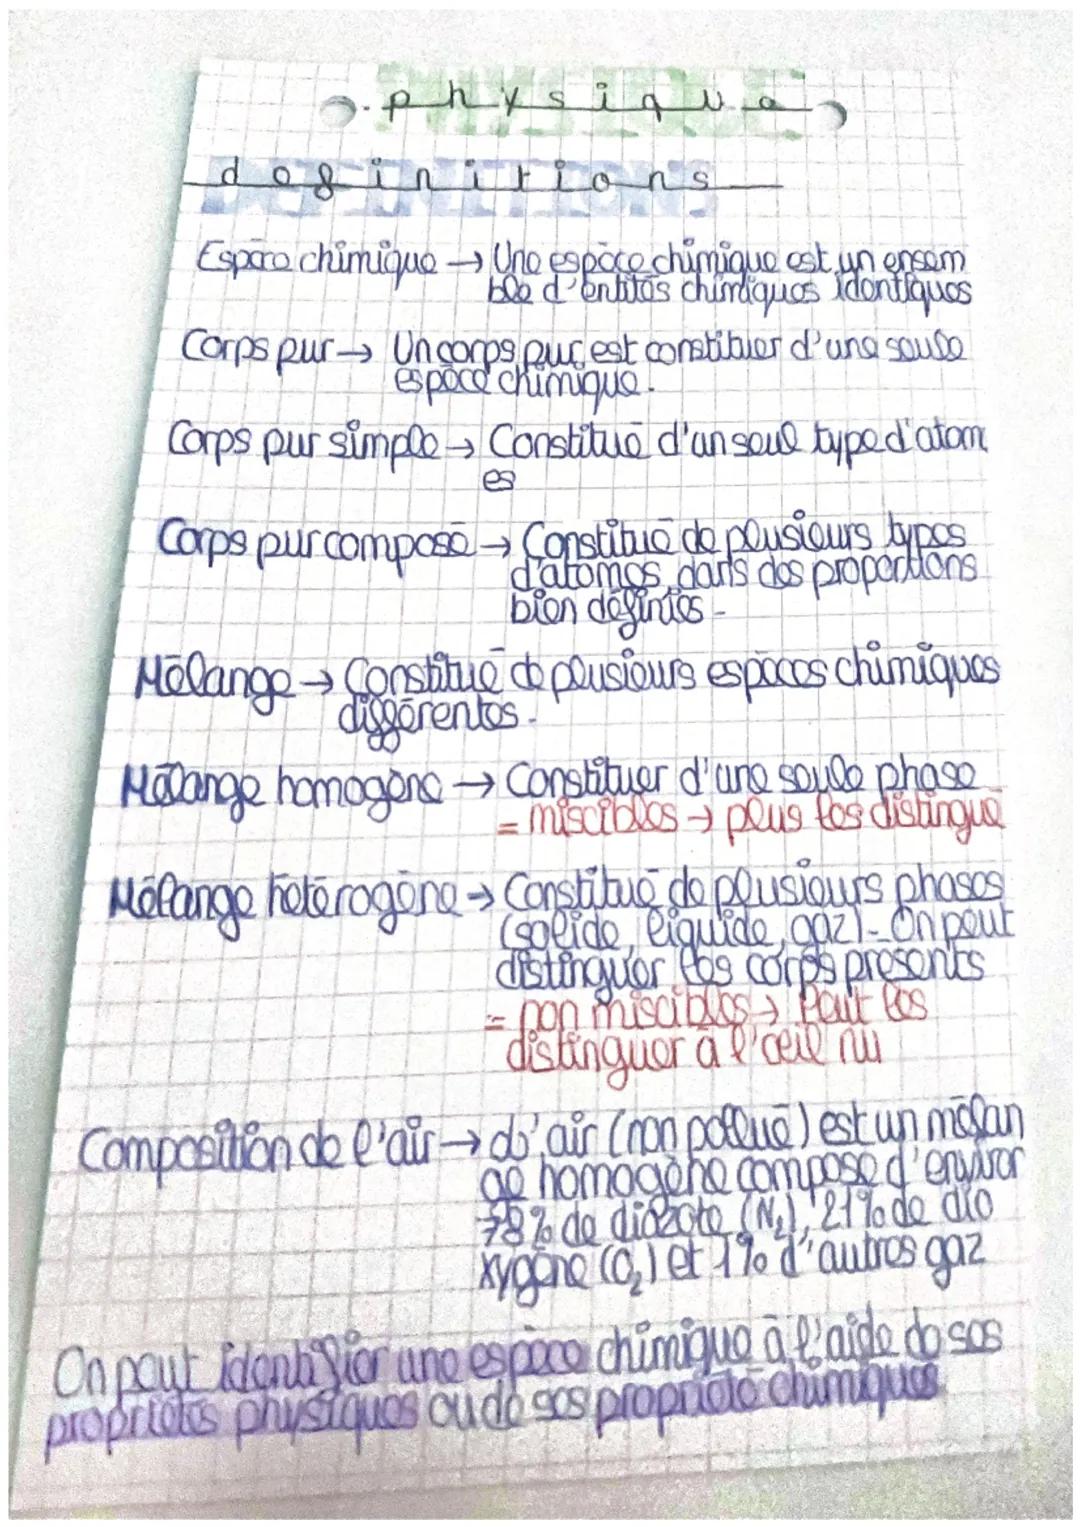 physique
DEFINITIONS
definitions
Espèce chimique → Une espèce chimique est un ensem
ble d'entités chimiques identiques
Corps pur → Un corps pur est constituer d'une seule
espèce chimique.
Corps pur simple → Constitué d'un seul type d'atom
es
Corps pur composé → Constitué de plusieurs types
d'atomes dans des proportions
bien définies -
Mélange → Constitué de plusieurs espèces chimiques
différentes -
Mélange homogène → Constituer d'une seule phase
= miscibles → plus les distingué
Mélange hétérogène → Constitué de plusieurs phases
(solide, liquide, gaz) - On peut
distinguer les corps presents
= non miscibles → Peut les
distinguer à l'œil nu
Composition de l'air → air (non pollué) est un mélan
ge homogène compose d'environ
78% de diazote (N₂), 21% de dio
xygène (O₂) et 1% d'autres gaz
On peut identifier une espèce chimique à l'aide de ses
propriétés physiques ou de ses propriété chimiques